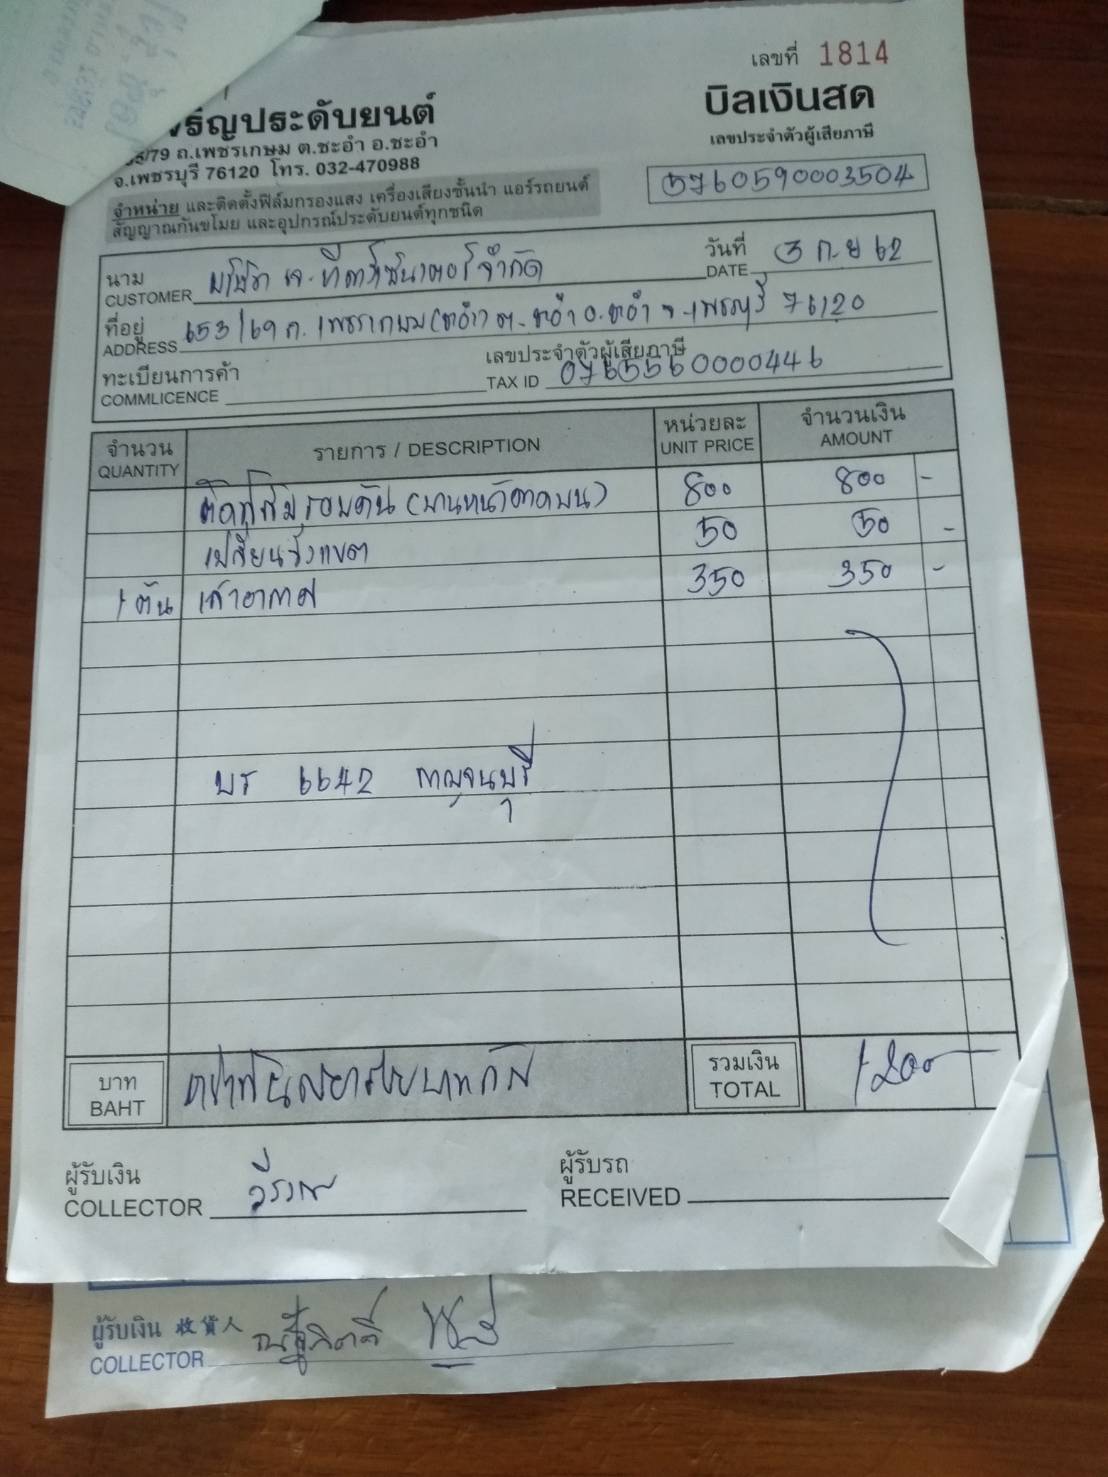 เลขที่ 1814
เจริญประดับยนต์
บิลเงินสด
/79 ถ.เพชรเกษม ต.ชะอำ อ.ชะอำ
จ.เพชรบุรี 76120 โทร. 032-470988
เลขประจำตัวผู้เสียภาษี
5760590003504
จำหน่าย และติดตั้งฟิล์มกรองแสง เครื่องเสียงชั้นนำ แอร์รถยนต์
สัญญาณกันขโมย และอุปกรณ์ประดับยนต์ทุกชนิด
นาม
CUSTOMER บริษัท เจ.ที คาร์เซ็นเตอร์ จำกัด
วันที่
DATE 3 ก.ย 62
ที่อยู่
ADDRESS 653/69 ถ.เพชรเกษม ต.ชะอำ อ.ชะอำ จ.เพชรบุรี 76120
ทะเบียนการค้า
COMMLICENCE
เลขประจำตัวผู้เสียภาษี
TAX ID 0765560000446
จำนวน
QUANTITY
รายการ / DESCRIPTION
หน่วยละ
UNIT PRICE
จำนวนเงิน
AMOUNT
ติดฟิล์มรอบคัน (บานหน้าคาดบน) 800 800 -
เปลี่ยน 50 50 -
1 ต้น เสาอากาศ 350 350 -
บร 6642 กาญจนบุรี
บาท
BAHT
รวมเงิน
TOTAL
1200
ผู้รับเงิน
COLLECTOR
ผู้รับรถ
RECEIVED
ผู้รับเงิน 收貨人
COLLECTOR